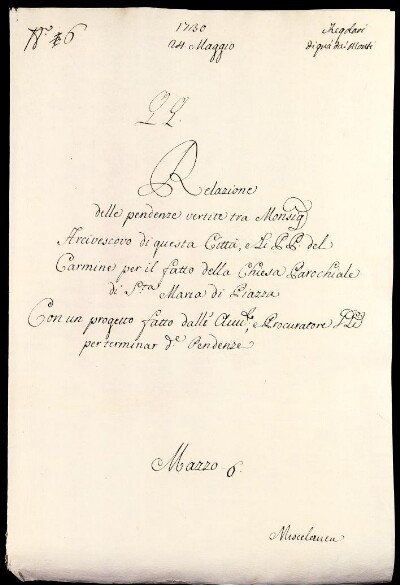 N.º 6
1730
24 Maggio
Regolari
di quà da' Monti
Relazione
delle pendenze vertite tra Monsig
Arcivescovo di questa Città, e Li PP del
Carmine per il fatto della Chiesa Parochiale
di S.ta Maria di Piazza
Con un progetto fatto dalli e Procuratore
per terminar d.e Pendenze
Mazzo 6.
Miscelanea